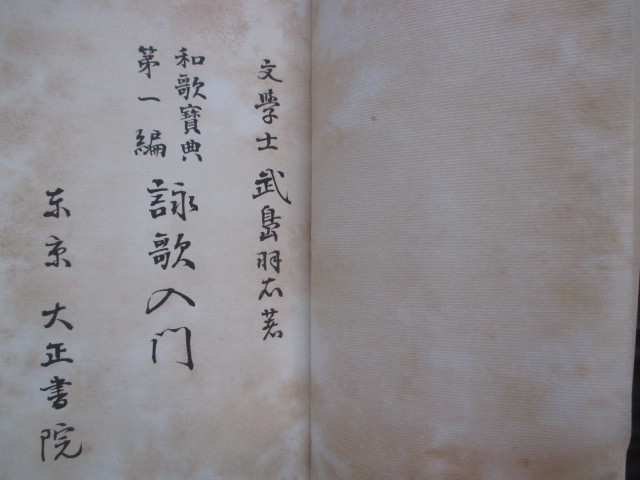 文學士 武島羽衣著
和歌寶典
第一編
詠歌入門
东京 大正書院